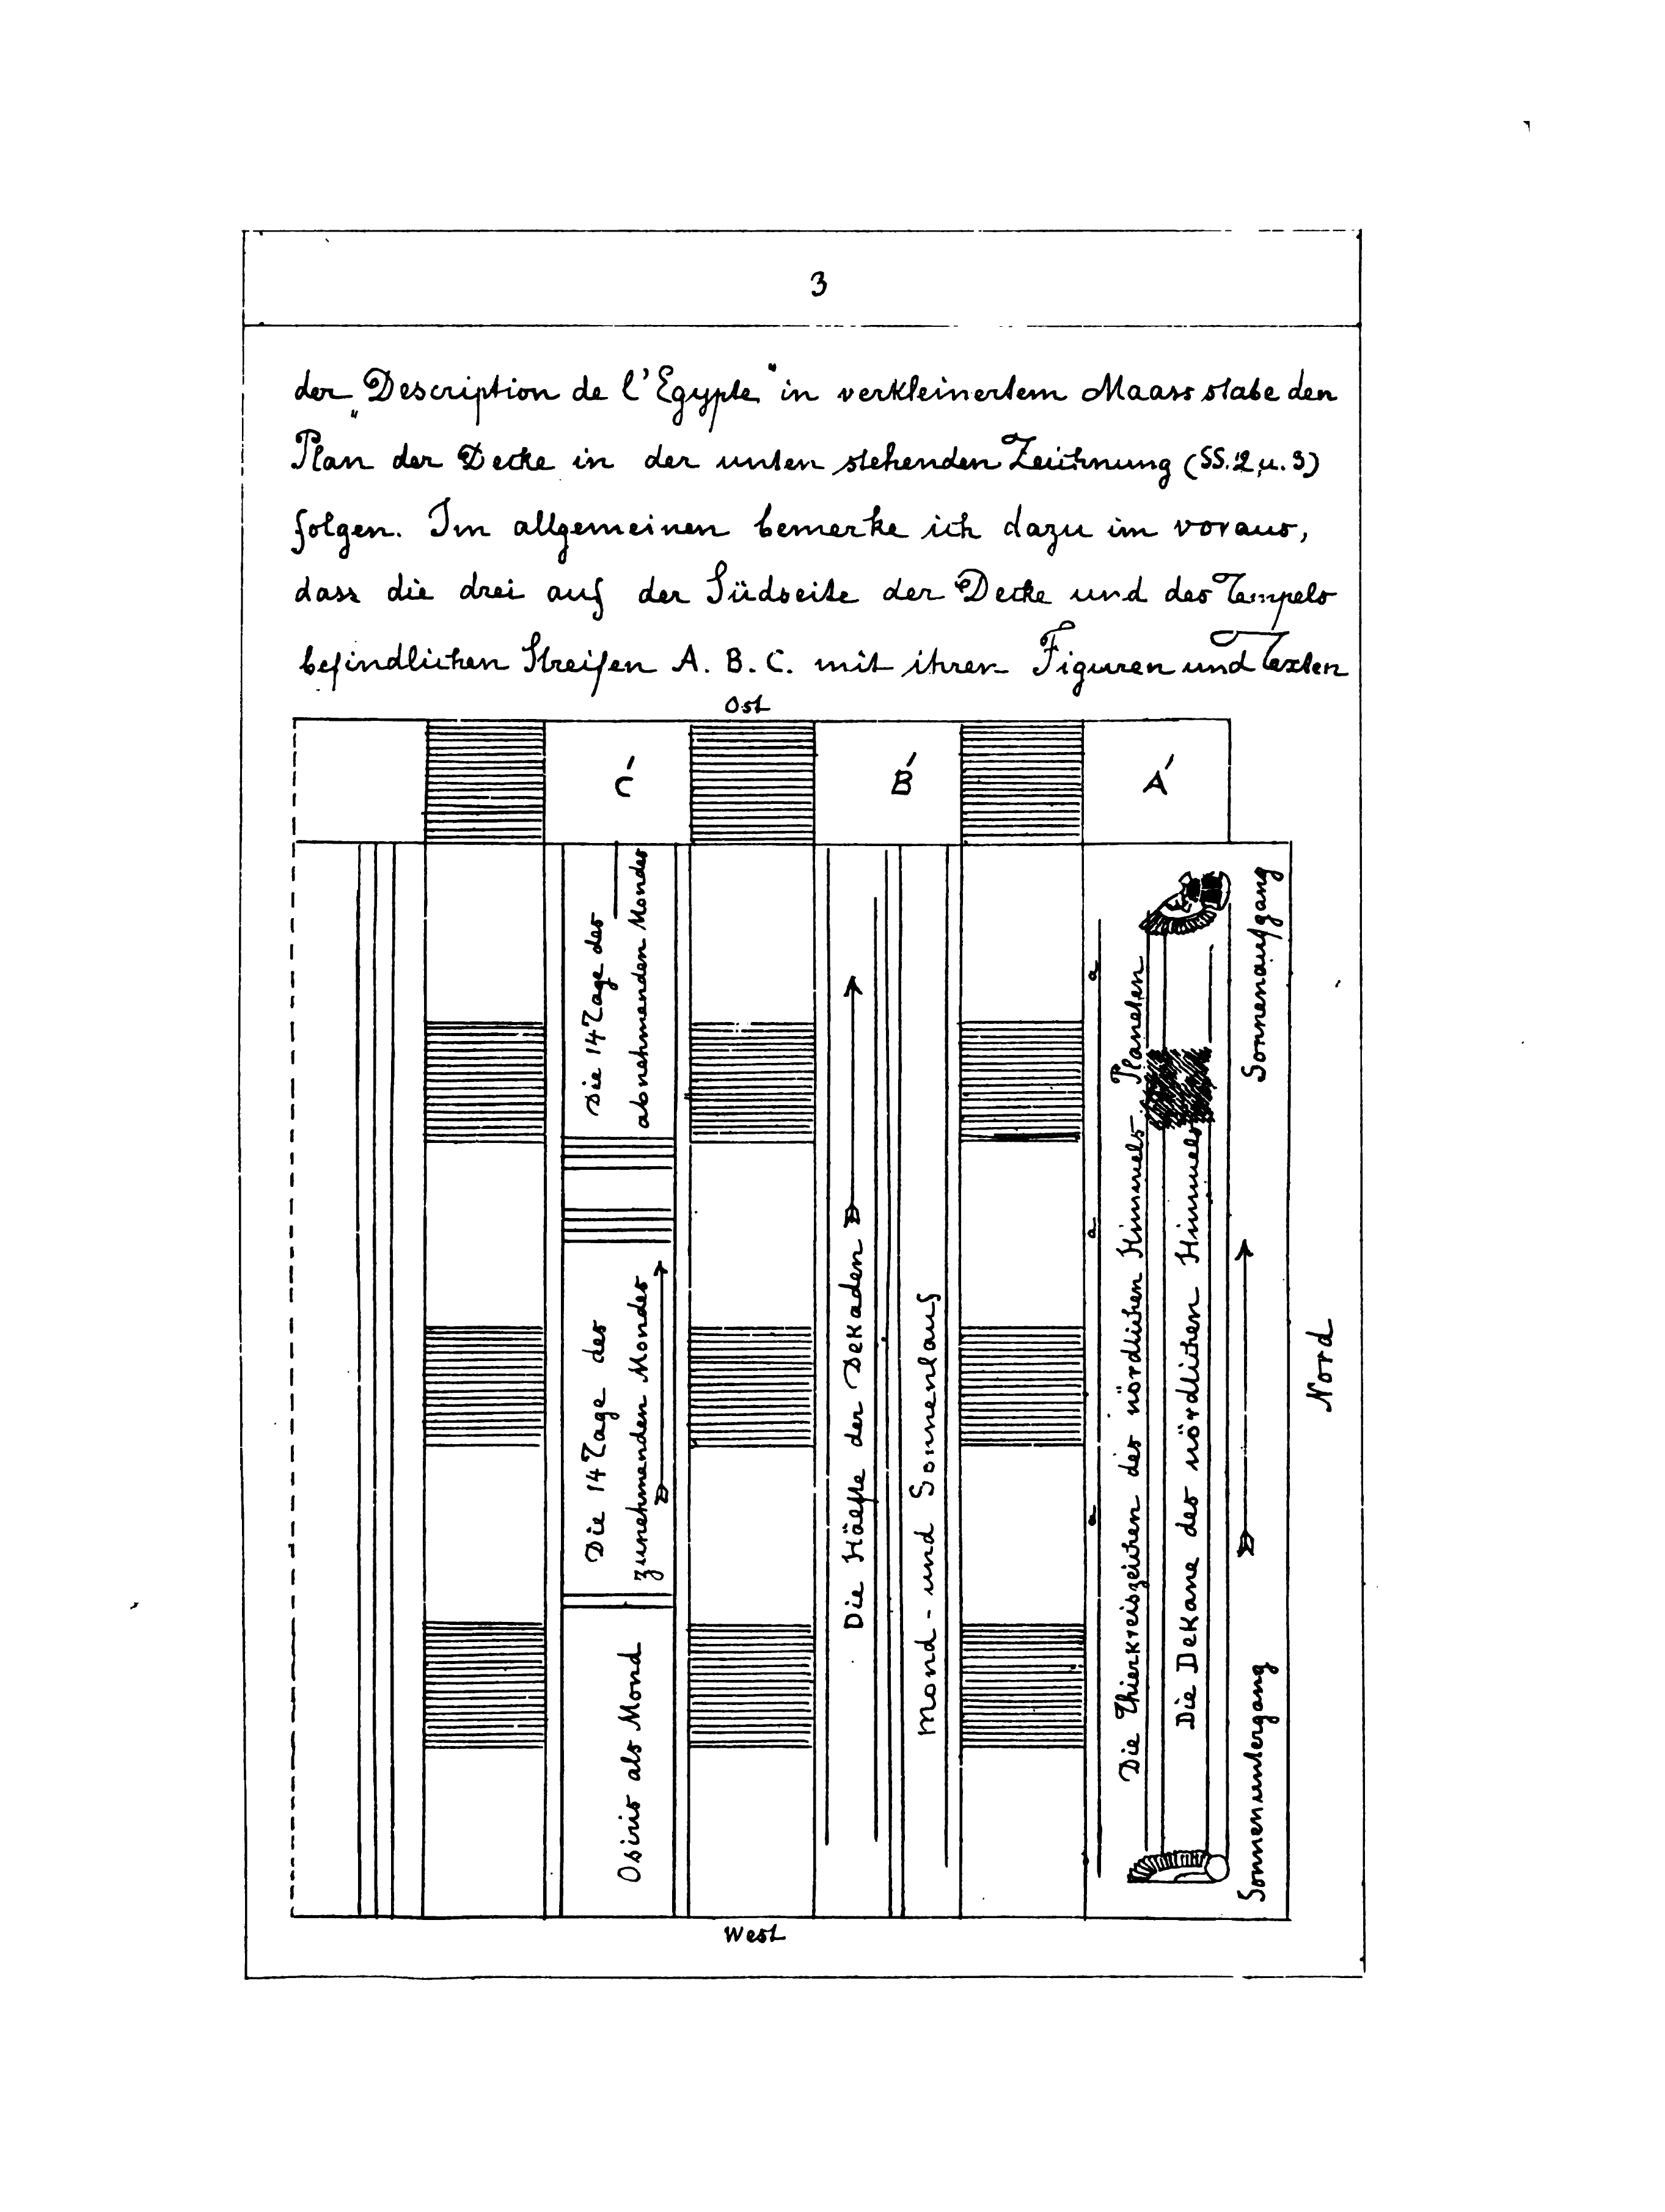 3
der „Description de l'Egypte" in verkleinertem Maassstabe den
Plan der Decke in der unten stehenden Zeichnung (SS. 2 u. 3)
folgen. Im allgemeinen bemerke ich dazu im voraus,
dass die drei auf der Südseite der Decke und des Tempels
befindlichen Streifen A. B. C. mit ihren Figuren und Texten
Ost
C' B' A'
Die 14 Tage des
abnehmenden Mondes
Die 14 Tage des
zunehmenden Mondes
Osiris als Mond
Die Häelfte der Dekaden
Mond- und Sonnenlauf
a
a
a
Die Thierkreiszeichen des nördlichen Himmels Planeten
Die Dekane des nördlichen Himmels
Sonnenaufgang
Sonnenuntergang
Nord
West